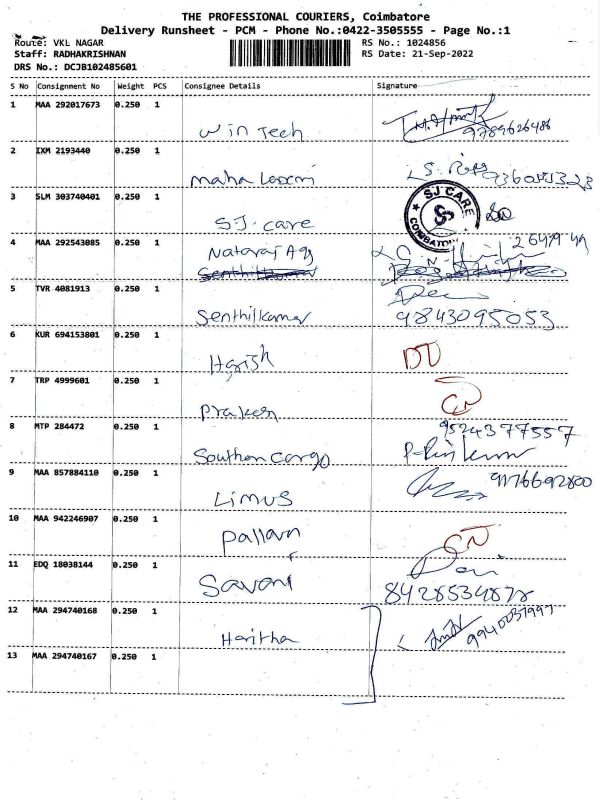 THE PROFESSIONAL COURIERS, Coimbatore
Delivery Runsheet - PCM - Phone No.:0422-3505555 - Page No.:1
Route: VKL NAGAR RS No.: 1024856
Staff: RADHAKRISHNAN RS Date: 21-Sep-2022
DRS No.: DCJB102485601
S No Consignment No Weight PCS Consignee Details Signature
1 MAA 292017673 0.250 1
Win Tech 9789626486
2 IXM 2193440 0.250 1
maha Laxmi
3 SLM 303740401 0.250 1
S.J. care SJ CARE COIMBATO
4 MAA 292543085 0.250 1
Nataraj Ag
5 TVR 4081913 0.250 1
Senthilkumar 9843095053
6 KUR 694153801 0.250 1
Harish DD
7 TRP 4999601 0.250 1
Prakash CN
8 MTP 284472 0.250 1 9524377557
Southern cargo
9 MAA 857884110 0.250 1 9176692800
Limus
10 MAA 942246907 0.250 1
Pallavi CN
11 EDQ 18038144 0.250 1
Savani 8428534878
12 MAA 294740168 0.250 1
Haritha 9940037997
13 MAA 294740167 0.250 1